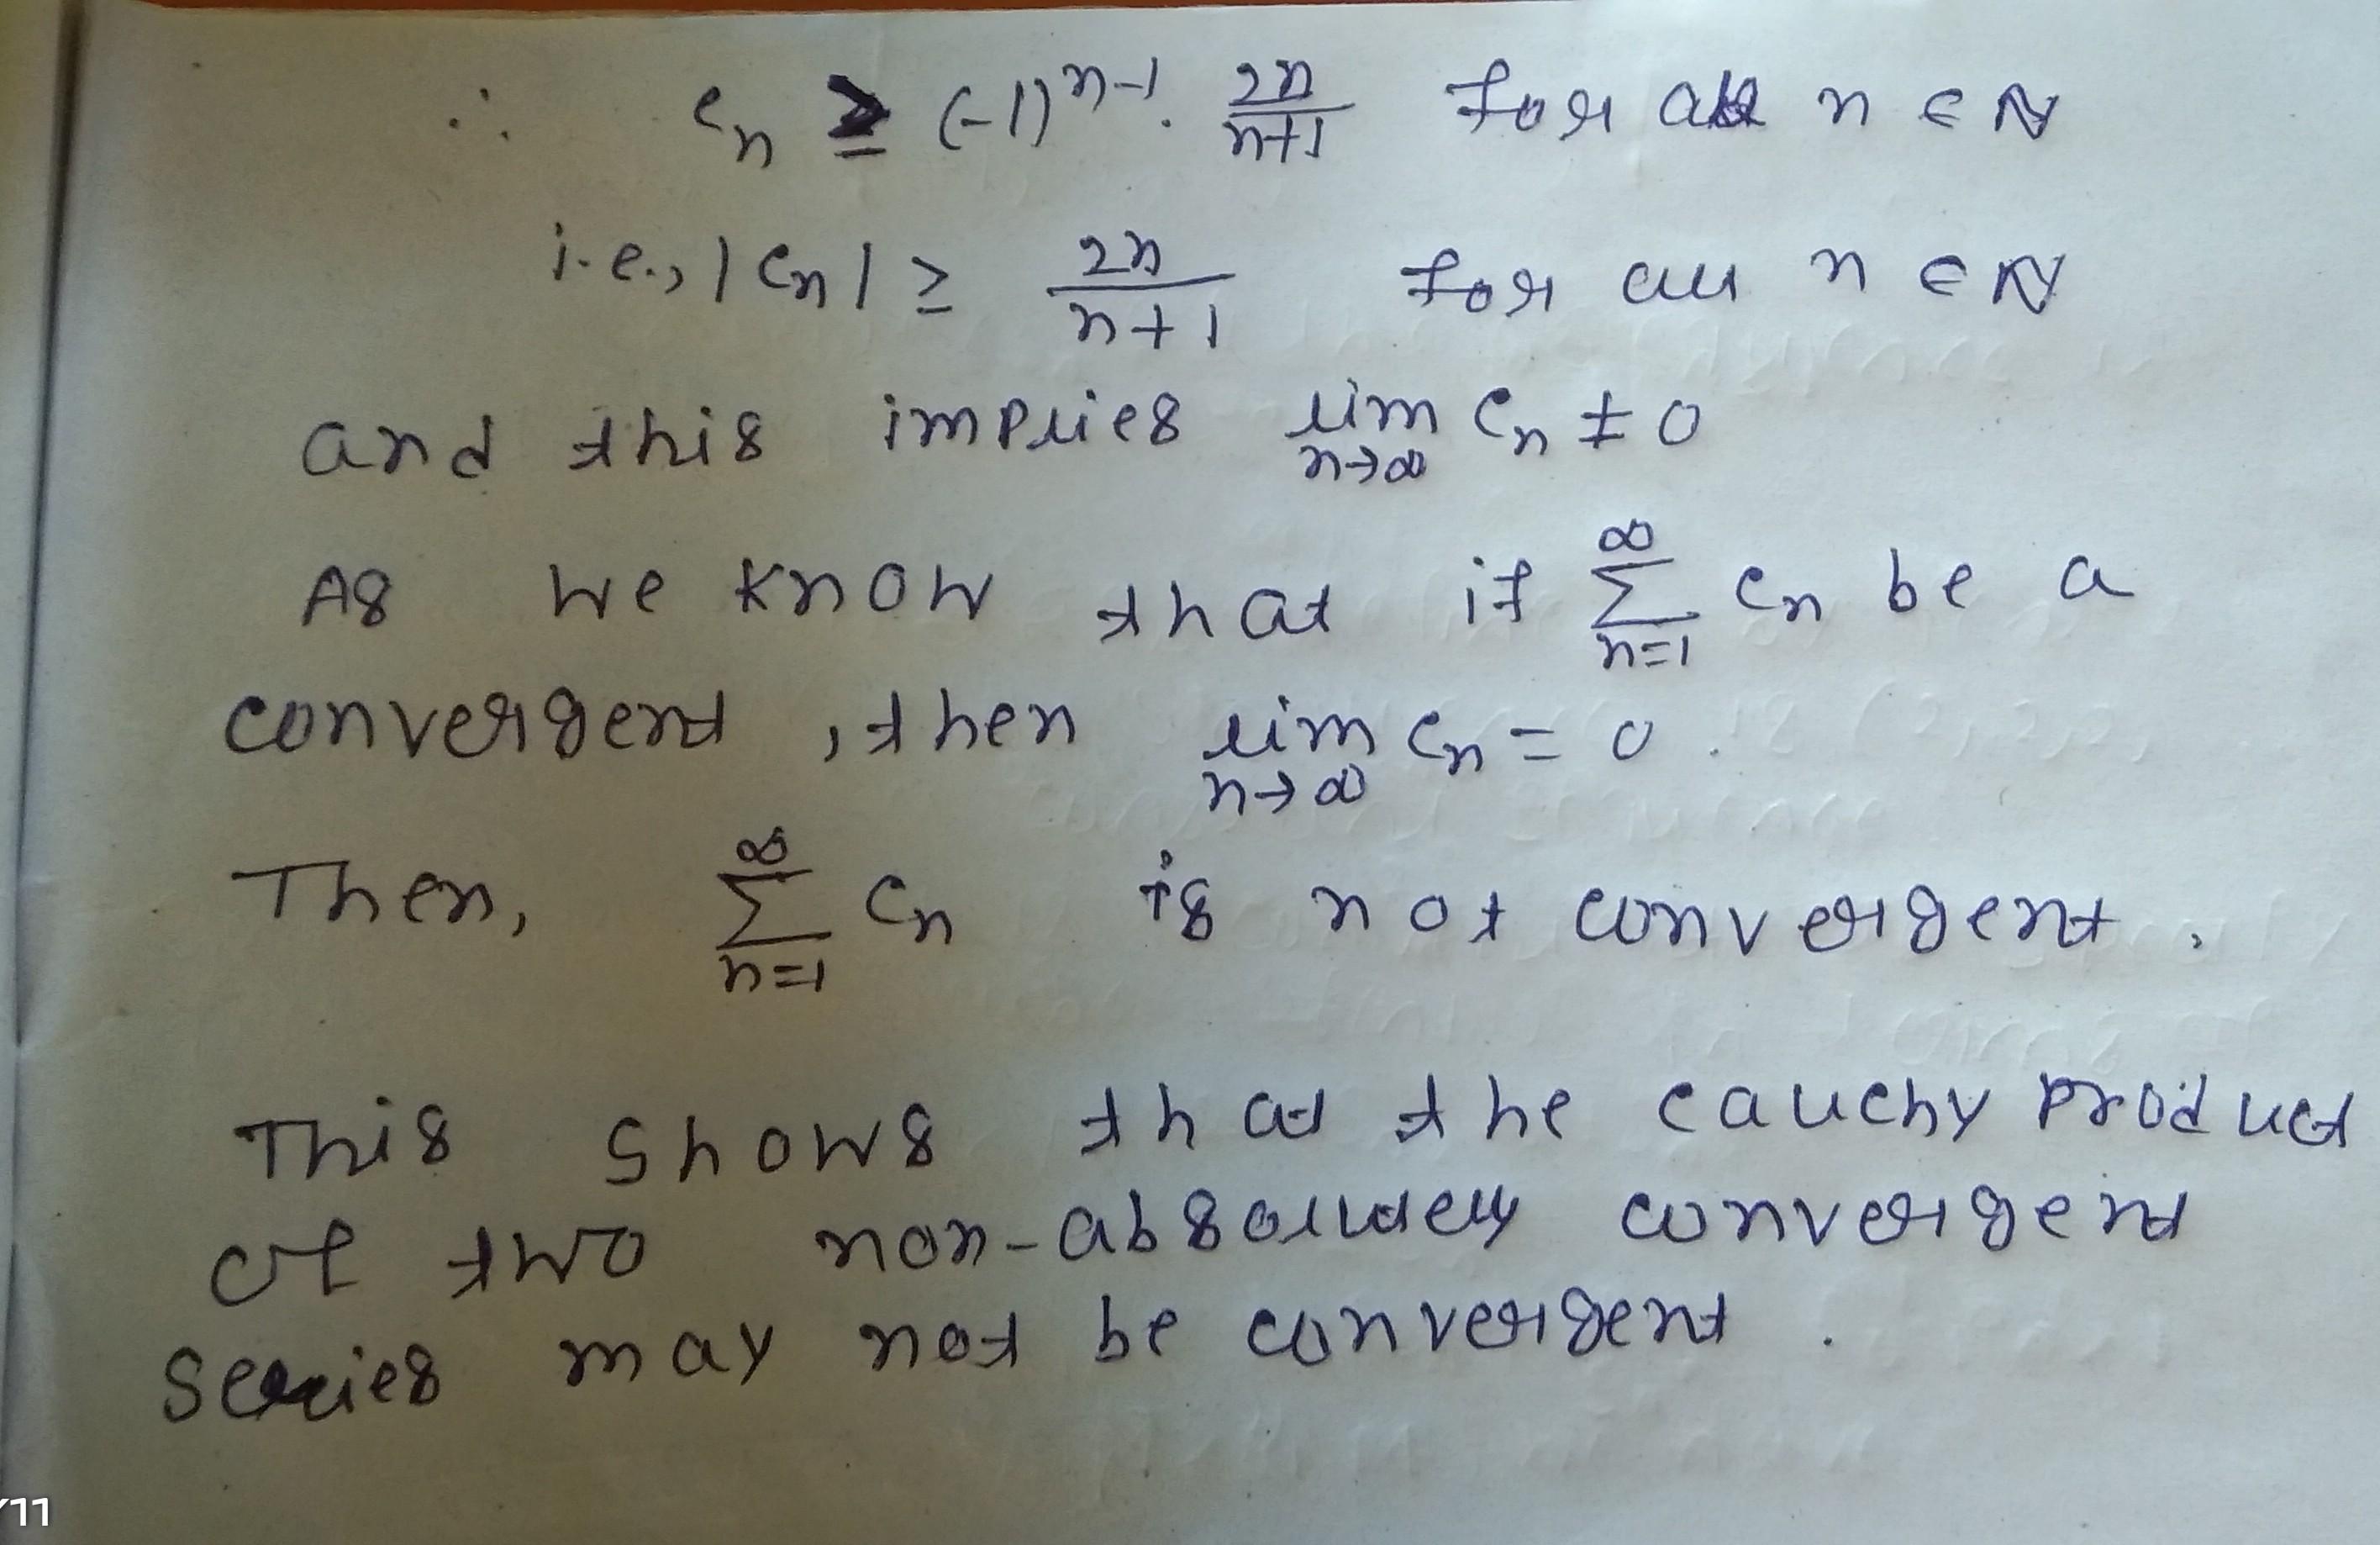 ∴ cₙ ≥ (-1)ⁿ⁻¹. 2n/(n+1) for all n ∈ ℕ
i.e., |cₙ| ≥ 2n/(n+1) for all n ∈ ℕ
and this implies lim n→∞ cₙ ≠ 0
As we know that if ∞ Σ n=1 cₙ be a
convergent, then lim n→∞ cₙ = 0.
Then, ∞ Σ n=1 cₙ is not convergent.
This shows that the cauchy product
of two non-absolutely convergent
series may not be convergent.
/11